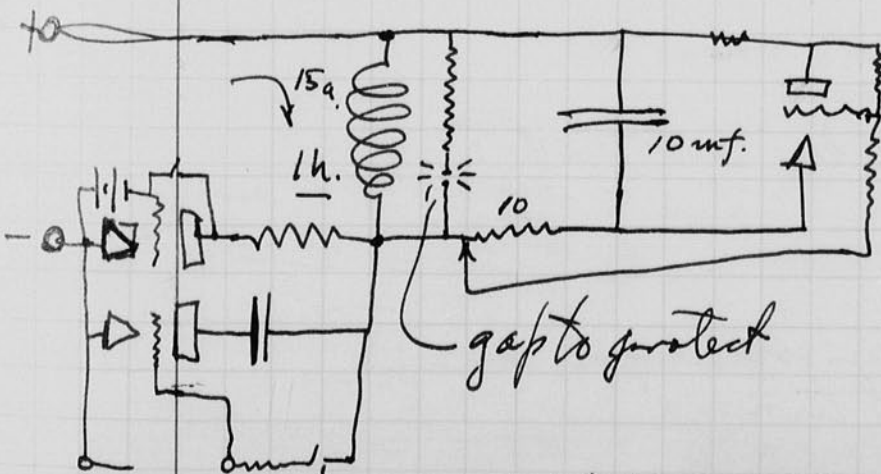 +
15a.
1h.
10 mf.
10
-
gap to protect